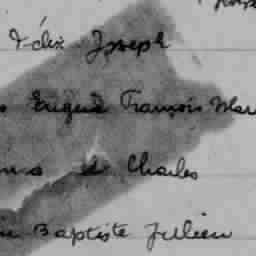 Félix Joseph
Eugène François Mar
et Charles
Baptiste Jullien